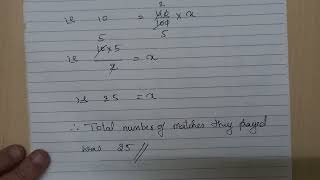 ie 10 = 40/100 × x
2
5
5
ie 10 × 5 / 2 = x
ie 25 = x
∴ Total number of matches they played
was 25 //